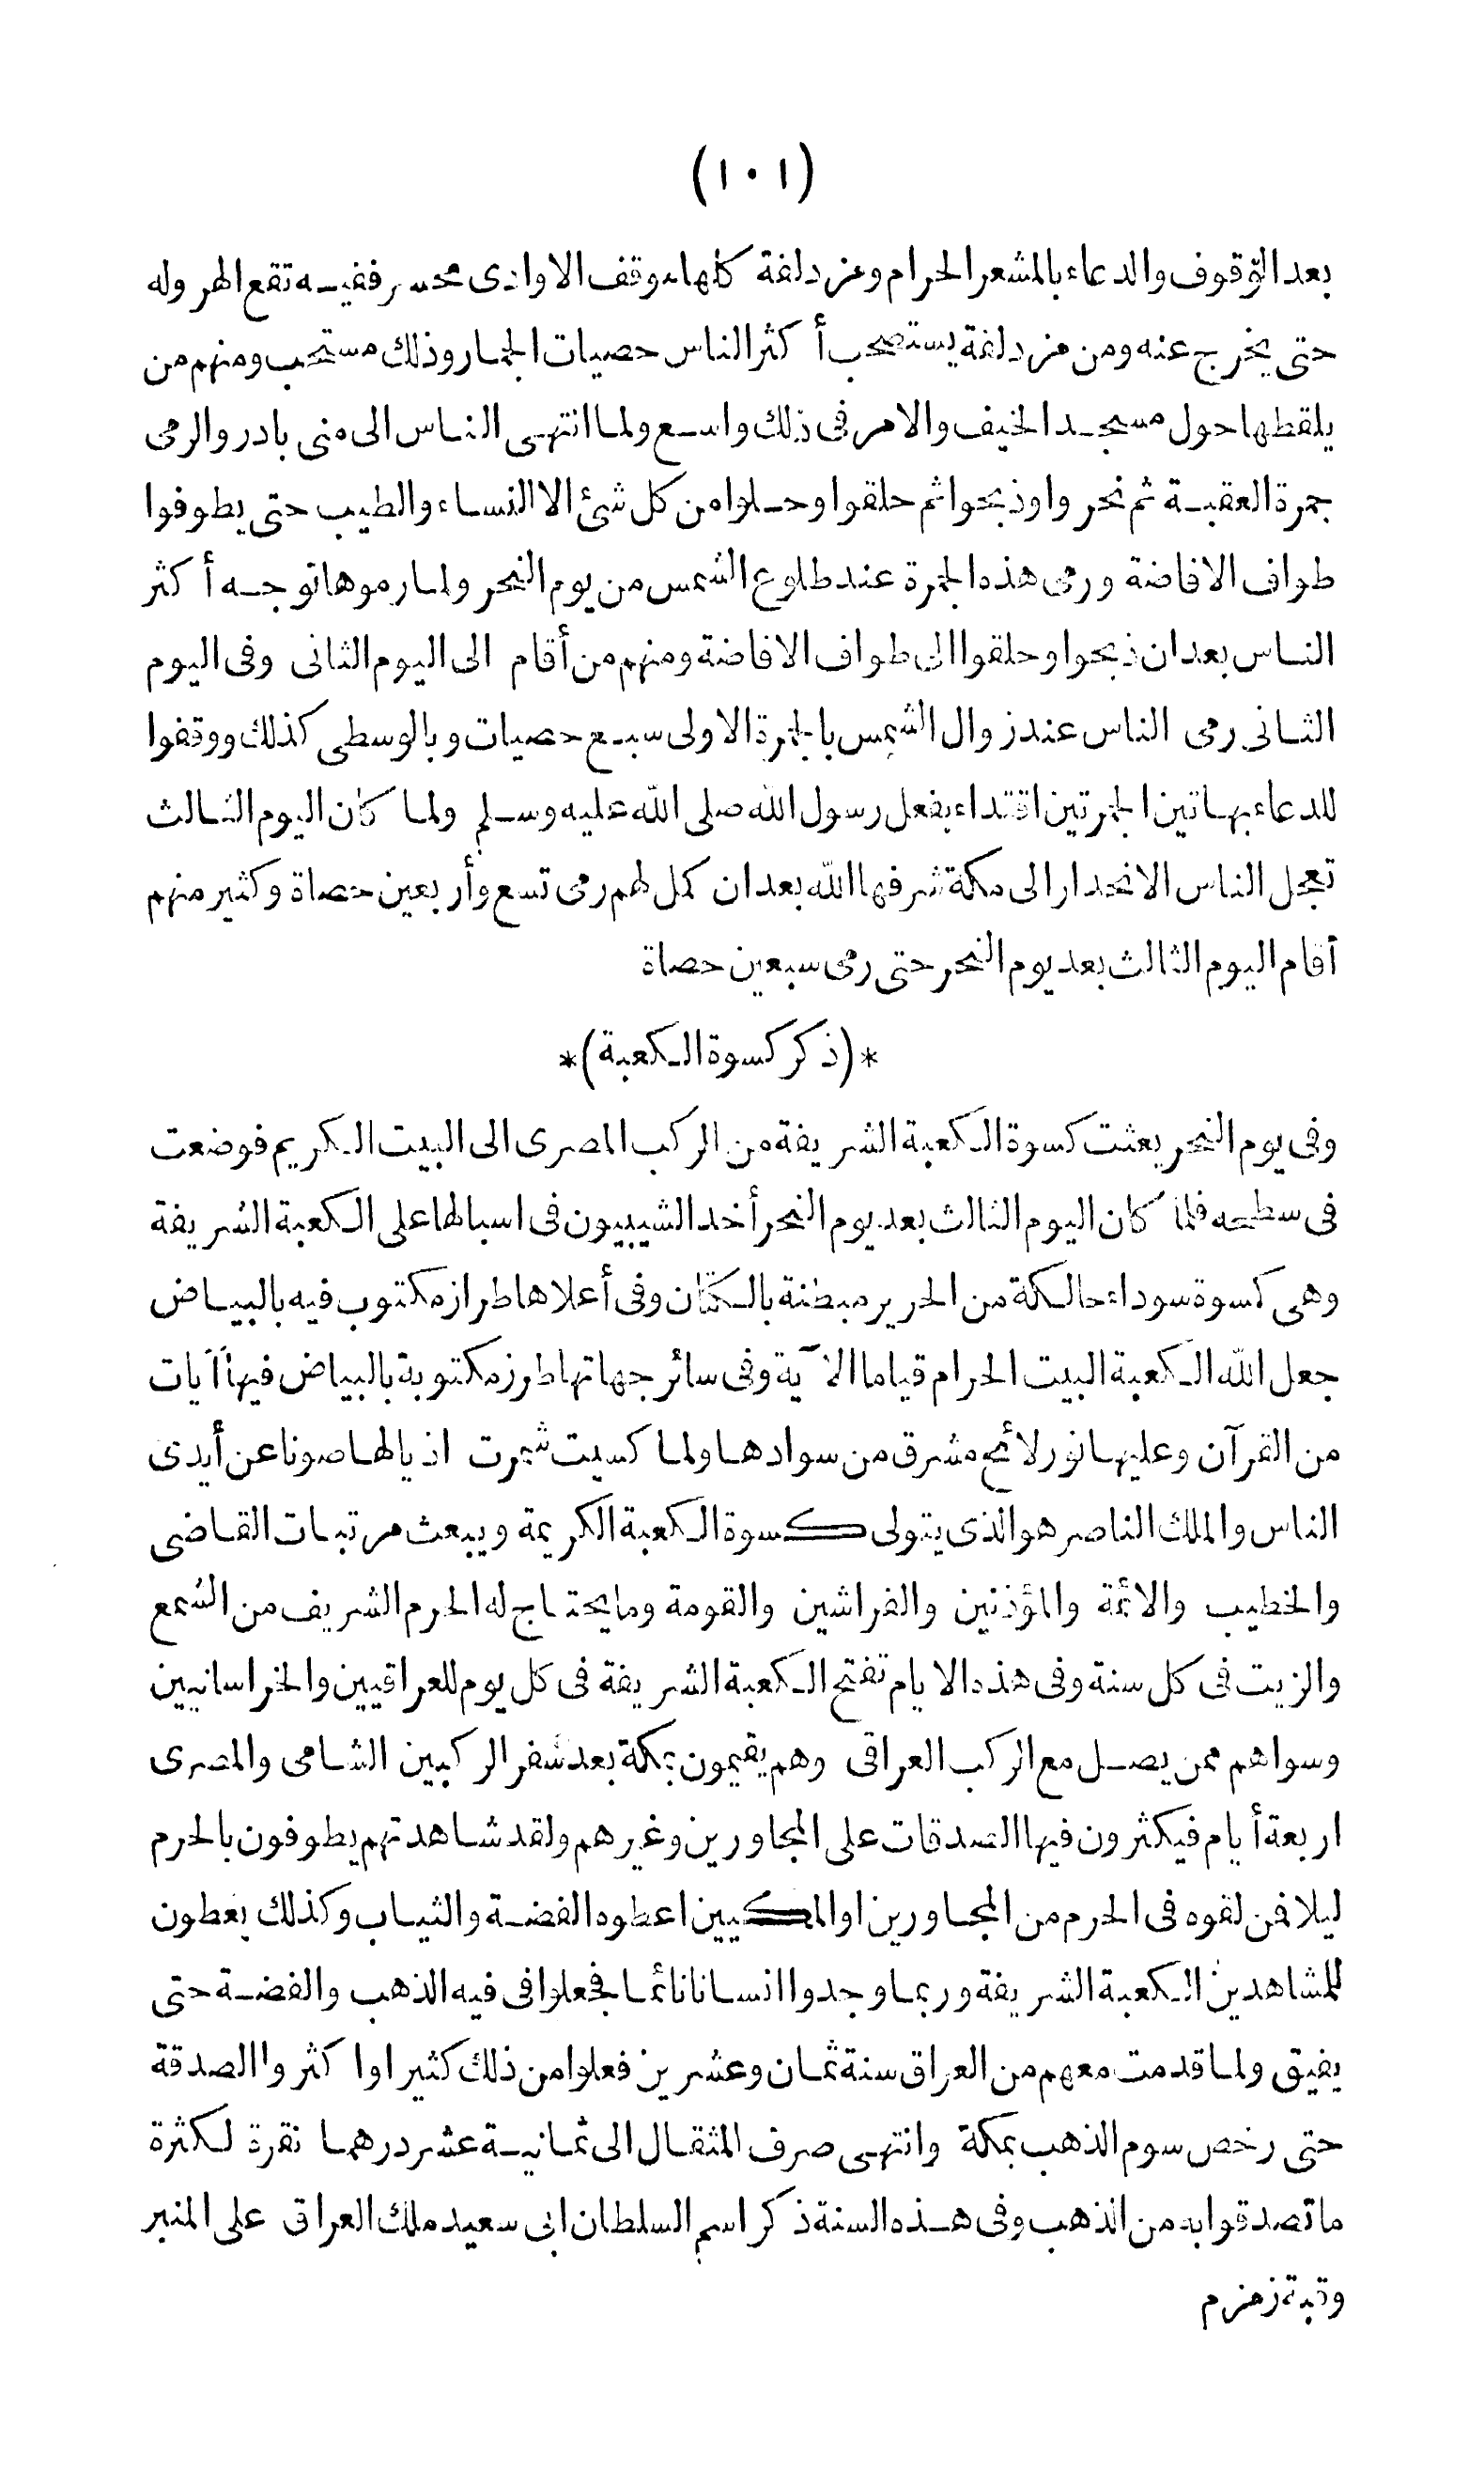 (١٠١)
بعد الوقوف والدعاء بالمشعر الحرام ومزدلفة كلها موقف الا وادى محسر ففيه تقع الهروله
حتى يخرج عنه ومن مزدلفة يستصحب أكثر الناس حصيات الجمار وذلك مستحب ومنهم من
يلقطها حول مسجد الخيف والامر فى ذلك واسع ولما انتهى الناس الى منى بادروا لرمى
جمرة العقبة ثم نحروا وذبحوا ثم حلقوا وحلوا من كل شئ الا النساء والطيب حتى يطوفوا
طواف الافاضة ورمى هذه الجمرة عند طلوع الشمس من يوم النحر ولما رموها توجه أكثر
الناس بعد ان ذبحوا وحلقوا الى طواف الافاضة ومنهم من أقام الى اليوم الثانى وفى اليوم
الثانى رمى الناس عند زوال الشمس بالجمرة الاولى سبع حصيات وبالوسطى كذلك ووقفوا
للدعاء بهاتين الجمرتين اقتداء بفعل رسول الله صلى الله عليه وسلم ولما كان اليوم الثالث
تعجل الناس الانحدار الى مكة شرفها الله بعد ان كمل لهم رمى تسع وأربعين حصاة وكثير منهم
أقام اليوم الثالث بعد يوم النحر حتى رمى سبعين حصاة
*(ذكر كسوة الكعبة)*
وفى يوم النحر بعثت كسوة الكعبة الشريفة من الركب المصرى الى البيت الكريم فوضعت
فى سطحه فلما كان اليوم الثالث بعد يوم النحر أخذ الشيبيون فى اسبالها على الكعبة الشريفة
وهى كسوة سوداء حالكة من الحرير مبطنة بالكتان وفى أعلاها طراز مكتوب فيه بالبياض
جعل الله الكعبة البيت الحرام قياما الآية وفى سائر جهاتها طرز مكتوبة بالبياض فيها آيات
من القرآن وعليها نور لائح مشرق من سوادها ولما كسيت شمرت اذيالها صونا عن أيدى
الناس والملك الناصر هو الذى يتولى كسوة الكعبة الكريمة ويبعث مرتبات القاضى
والخطيب والائمة والمؤذنين والفراشين والقومة وما يحتاج له الحرم الشريف من الشمع
والزيت فى كل سنة وفى هذه الايام تفتح الكعبة الشريفة فى كل يوم للعراقيين والخراسانيين
وسواهم ممن يصل مع الركب العراقى وهم يقيمون بمكة بعد سفر الركبين الشامى والمصرى
اربعة أيام فيكثرون فيها الصدقات على المجاورين وغيرهم ولقد شاهدتهم يطوفون بالحرم
ليلا فمن لقوه فى الحرم من المجاورين او المكيين اعطوه الفضة والثياب وكذلك يعطون
للمشاهدين الكعبة الشريفة وربما وجدوا انسانا نائما فجعلوا فى فيه الذهب والفضة حتى
يفيق ولما قدمت معهم من العراق سنة ثمان وعشرين فعلوا من ذلك كثيرا واكثروا الصدقة
حتى رخص سوم الذهب بمكة وانتهى صرف المثقال الى ثمانية عشر درهما نقرة لكثرة
ما تصدقوا به من الذهب وفى هذه السنة ذكر اسم السلطان ابى سعيد ملك العراق على المنبر
وقبة زمزم